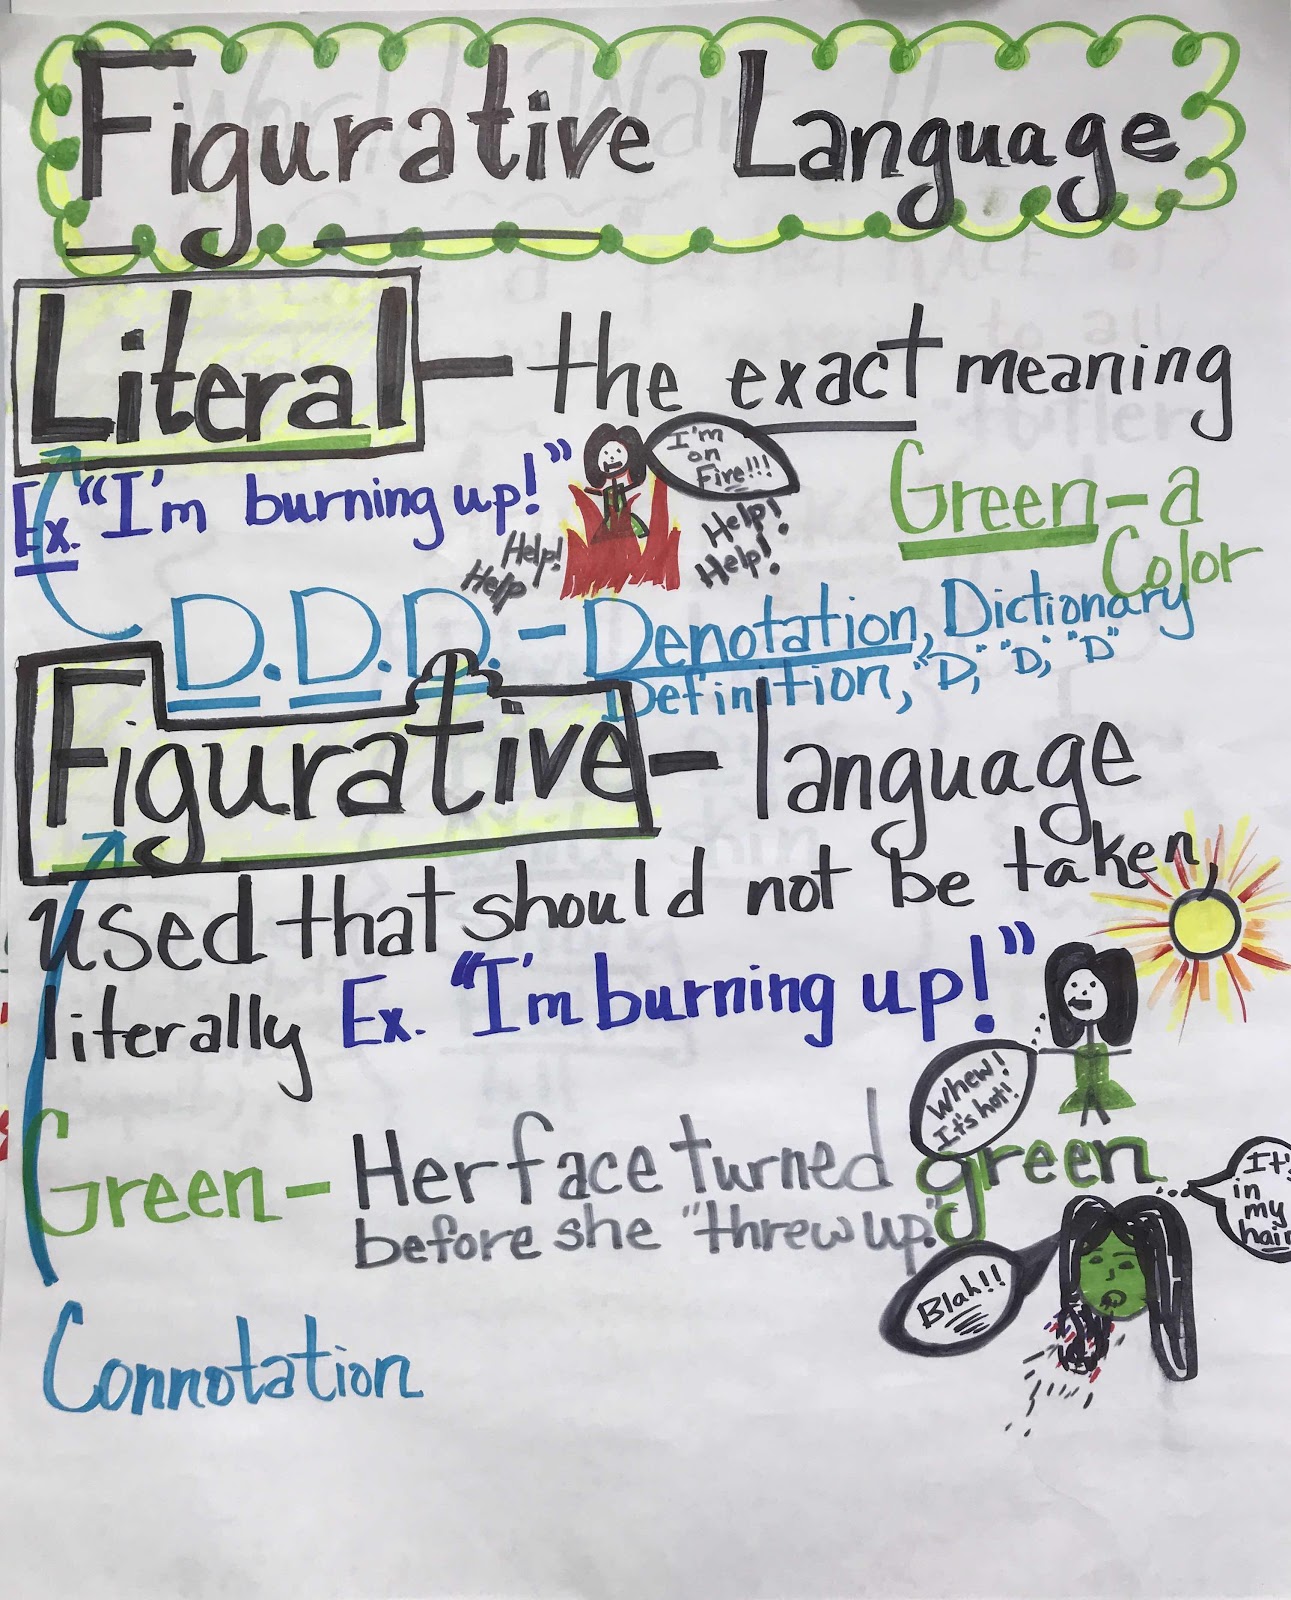 Figurative Language
Literal - the exact meaning
Ex. "I'm burning up!"
I'm
on
Fire!!!
Help!
Help
Help!
Help!
Green - a
Color
D.D.D. - Denotation, Dictionary
Definition, "D," "D," "D"
Figurative - language
used that should not be taken
literally Ex. "I'm burning up!"
Whew!
It's hot!
Green - Her face turned green
before she "threw up."
It's
in
my
hair
Blah!!
Connotation